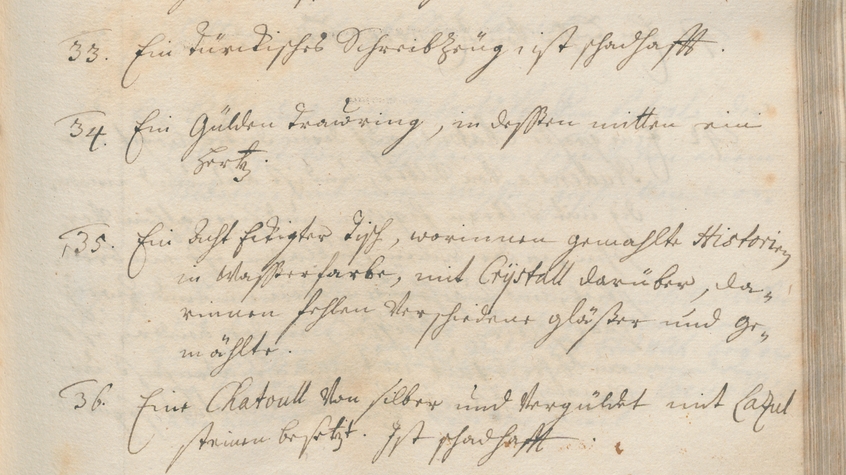 33. Ein Türckisches Schreibzeüg ist schadhafft.
34. Ein Gülden Trauring, in deßen mitten ein
Hertz.
35. Ein Acht Eckigter Tisch, worinnen gemahlte Historien
in Waßerfarbe, mit Crÿstall darüber, da-
rinnen fehlen Verschiedene gläßer und Ge-
mählte.
36. Eine Chatoull Von silber und Vergüldet mit Lazul
steinen besetzt. Ist schadhafft.